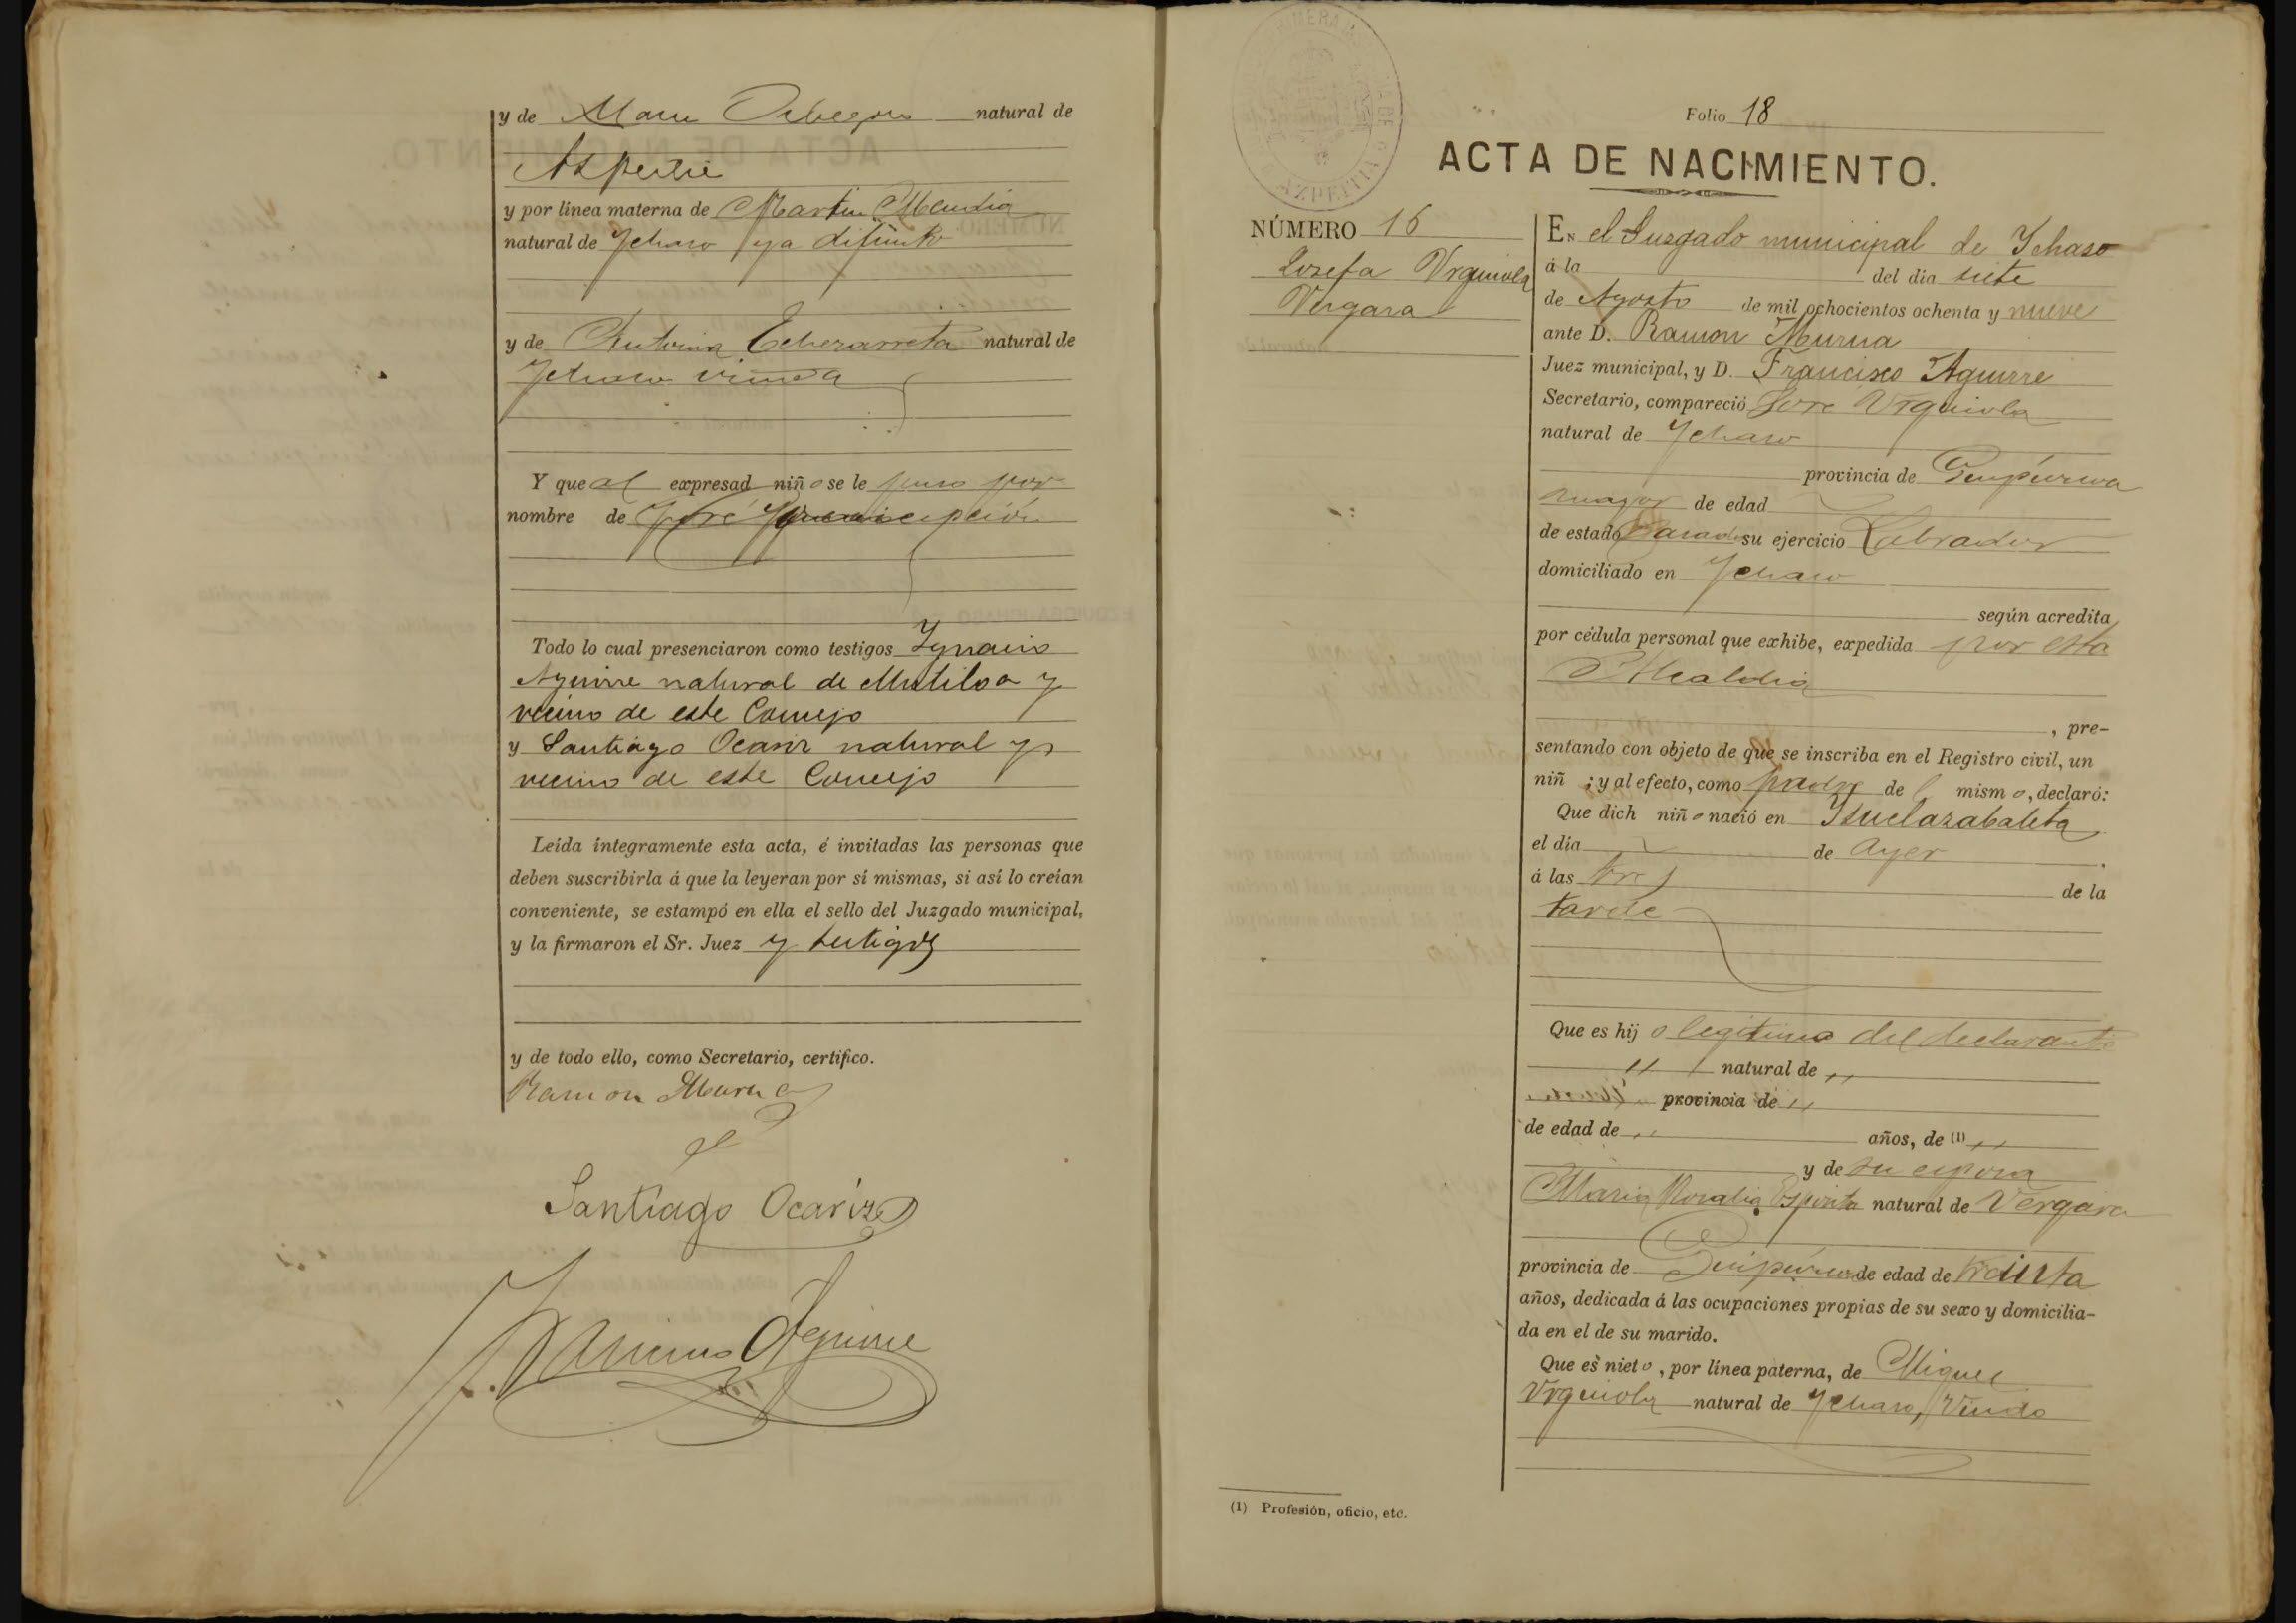 y de Maria natural de
Azpeitia
y por línea materna de Martin Mendia
natural de Ychaso ya difunto
y de Antonia Echezarreta natural de
Ychaso viuda
Y que al expresad niño se le puso por
nombre de José
Todo lo cual presenciaron como testigos Ygnacio
Aguirre natural de Mutiloa y
vecino de este Concejo
y Santiago Ocariz natural y
vecino de este Concejo
Leída íntegramente esta acta, é invitadas las personas que
deben suscribirla á que la leyeran por sí mismas, si así lo creían
conveniente, se estampó en ella el sello del Juzgado municipal,
y la firmaron el Sr. Juez y testigos
y de todo ello, como Secretario, certifico.
Ramon Murua
Santiago Ocariz
Francisco Aguirre
Folio 18
ACTA DE NACIMIENTO.
AZPEITIA
NÚMERO 16
Josefa Urquiola
Vergara
EN el Juzgado municipal de Ychaso
á la del día siete
de Agosto de mil ochocientos ochenta y nueve
ante D. Ramon Murua
Juez municipal, y D. Francisco Aguirre
Secretario, compareció José Urquiola
natural de Ychaso
provincia de Guipúzcoa
mayor de edad
de estado Casado su ejercicio Labrador
domiciliado en Ychaso
según acredita
por cédula personal que exhibe, expedida por esta
Alcaldia
, pre-
sentando con objeto de que se inscriba en el Registro civil, un
niñ ; y al efecto, como padre de l mismo, declaró:
Que dich niño nació en
el día de ayer
á las tres de la
tarde
Que es hijo legitimo del declarante
" natural de "
provincia de "
de edad de " años, de (1) "
y de su esposa
Maria Rosalia natural de Vergara
provincia de Guipúzcoa de edad de treinta
años, dedicada á las ocupaciones propias de su sexo y domicilia-
da en el de su marido.
Que es nieto, por línea paterna, de Miguel
Urquiola natural de Ychaso, Viudo
(1) Profesión, oficio, etc.